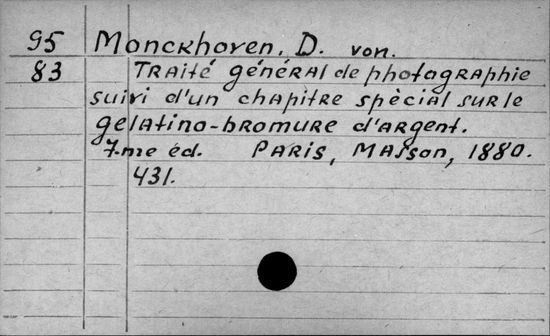 95 Monckhoven, D. von.
83 Traité général de photographie
suivi d'un chapitre spècial sur le
gelatino-bromure d'argent.
7-me éd. Paris, Masson, 1880.
431.